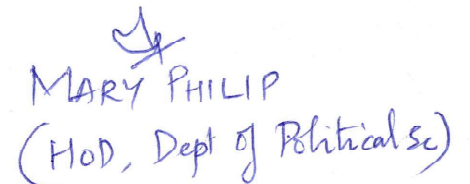 MARY PHILIP
(HOD, Dept of Political Sc)